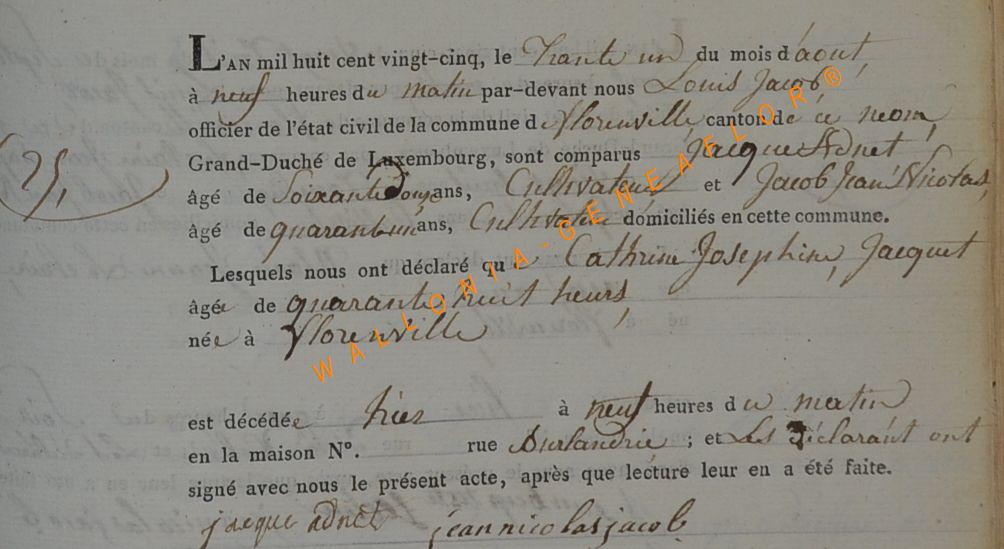 L'AN mil huit cent vingt-cinq, le Trante un du mois d'aout
à neuf heures du matin par-devant nous Louis Jacob
officier de l'état civil de la commune de Florenville canton de ce nom
Grand-Duché de Luxembourg, sont comparus Jacque Adnet
25,
âgé de Soixante Douze ans, Cultivateur et Jacob Jean Nicolas,
âgé de quarante un ans, Cultivateur domiciliés en cette commune.
Lesquels nous ont déclaré que Cathrine Josephine, Jacquet
âgée de quarante huit heurs
née à Florenville
est décédée hier à neuf heures du matin
en la maison N°. rue ; et Les Déclarant ont
signé avec nous le présent acte, après que lecture leur en a été faite.
jacque adnet jean nicolas jacob
WALLONIA-GENEAELOR®